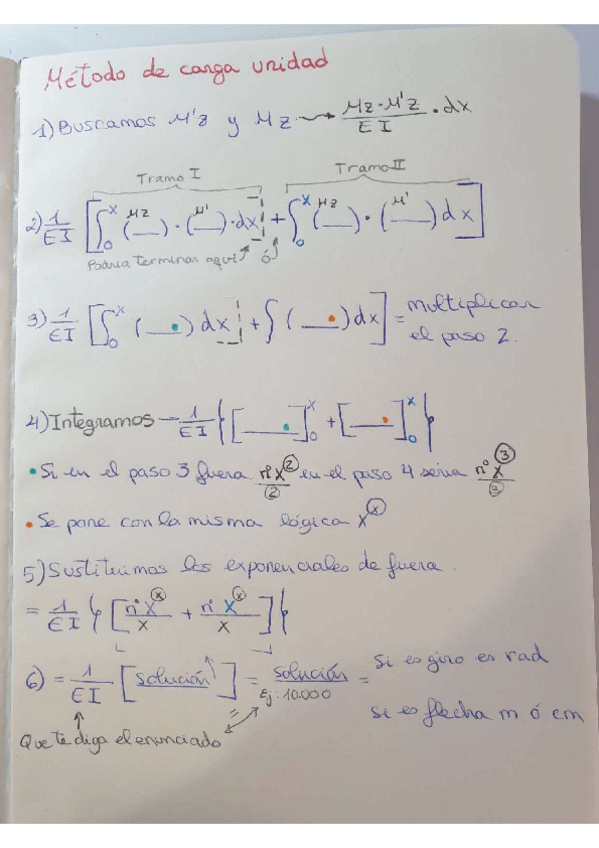 Método de carga unidad
1) Buscamos M'z y Mz → Mz·M'z / EI · dx
Tramo I Tramo II
2) 1/EI [∫₀ˣ (__Mz) · (__M')·dx + ∫₀ˣ (__Mz) · (__M') dx]
Podría terminar aquí ó
3) 1/EI [∫₀ˣ (__•) dx + ∫ (__•) dx] = multiplicar
el paso 2.
4) Integramos – 1/EI { [__•]₀ˣ + [__•]₀ˣ }
• Si en el paso 3 fuera nºx²/2 en el paso 4 seria nºx³/3
• Se pone con la misma lógica xˣ
5) Sustituimos los exponenciales de fuera.
= 1/EI { [nºxˣ/x + nºxˣ/x] }
6) = 1/EI [solución] = solución / Ej: 10.000 = si es giro es rad
si es flecha m ó cm
Que te diga el enunciado